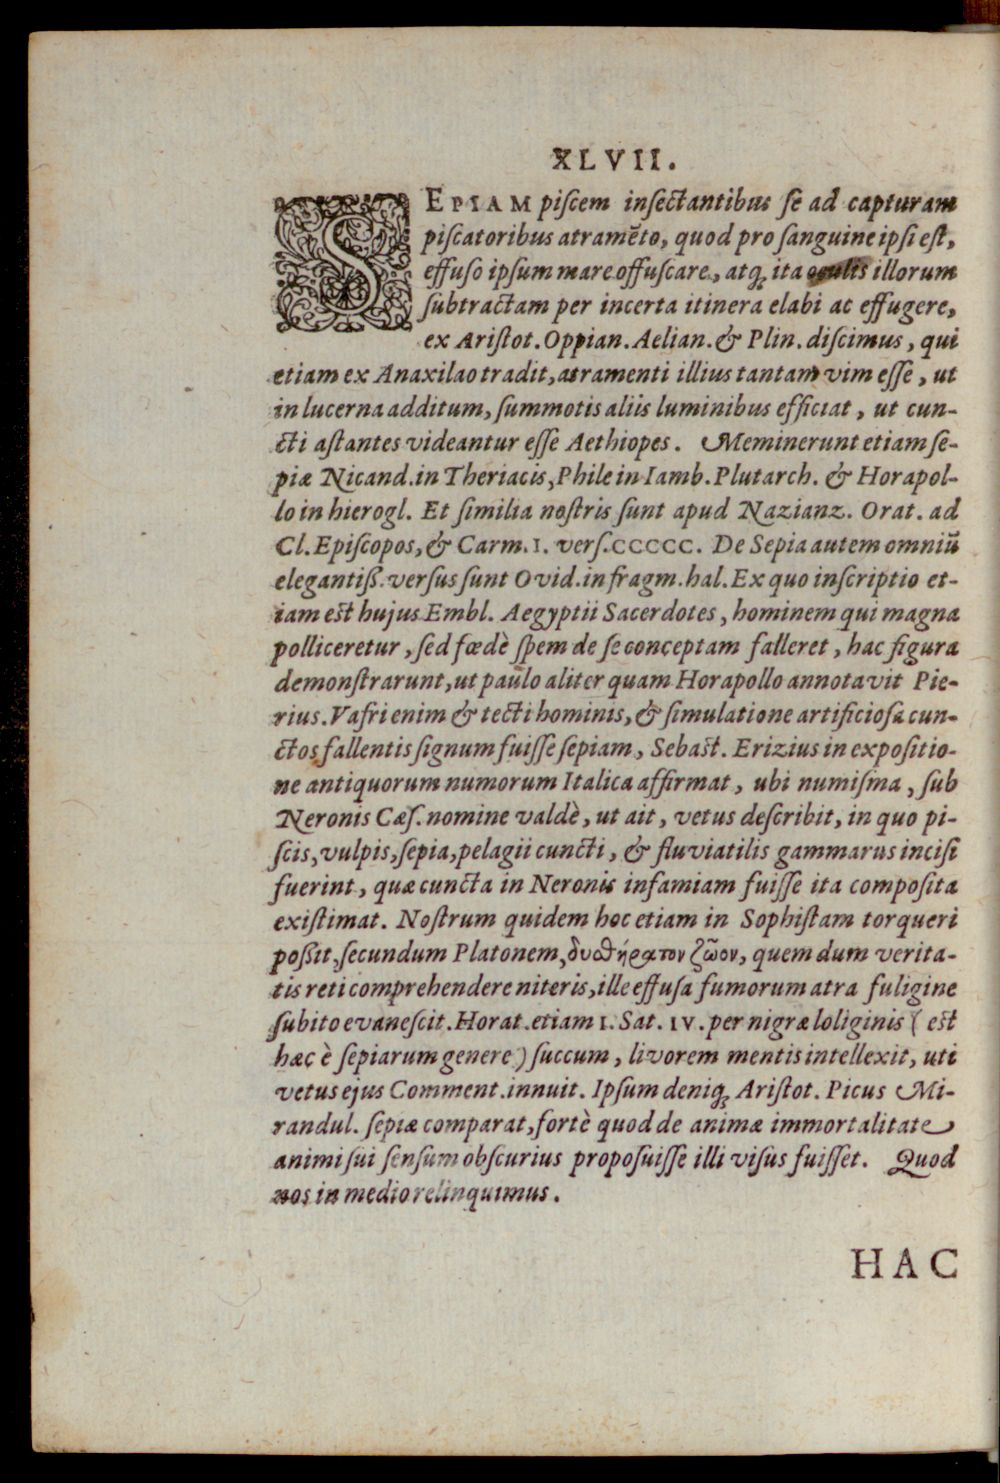 XLVII.
SEPIAM piſcem inſectantibus ſe ad capturam
piſcatoribus atramēto, quod pro ſanguine ipſi eſt,
effuſo ipſum mare offuſcare, atq; ita oculis illorum
ſubtractam per incerta itinera elabi ac effugere,
ex Ariſtot. Oppian. Aelian. & Plin. diſcimus, qui
etiam ex Anaxilao tradit, atramenti illius tantam vim eſſe, ut
in lucerna additum, ſummotis aliis luminibus efficiat, ut cun-
cti aſtantes videantur eſſe Aethiopes. Meminerunt etiam ſe-
piæ Nicand. in Theriacis, Phile in Iamb. Plutarch. & Horapol-
lo in hierogl. Et ſimilia noſtris ſunt apud Nazianz. Orat. ad
Cl. Epiſcopos, & Carm. I. verſ. CCCCC. De Sepia autem omniū
elegantiß. verſus ſunt Ovid. in fragm. hal. Ex quo inſcriptio et-
iam est hujus Embl. Aegyptii Sacerdotes, hominem qui magna
polliceretur, ſed fœdè ſpem de ſe conceptam falleret, hac figura
demonſtrarunt, ut paulo aliter quam Horapollo annotavit Pie-
rius. Vafri enim & tecti hominis, & ſimulatione artificioſa cun-
ctos fallentis ſignum fuiſſe ſepiam, Sebaſt. Erizius in expoſitio-
ne antiquorum numorum Italica affirmat, ubi numiſma, ſub
Neronis Cæſ. nomine valdè, ut ait, vetus deſcribit, in quo pi-
ſcis, vulpis, ſepia, pelagii cuncti, & fluviatilis gammarus inciſi
fuerint, quæ cuncta in Neronis infamiam fuiſſe ita compoſita
exiſtimat. Noſtrum quidem hoc etiam in Sophiſtam torqueri
poßit, ſecundum Platonem, δυσθήρατον ζῶον, quem dum verita-
tis reti comprehendere niteris, ille effuſa fumorum atra fuligine
ſubito evaneſcit. Horat. etiam I. Sat. IV. per nigræ loliginis (est
hæc è ſepiarum genere) ſuccum, livorem mentis intellexit, uti
vetus ejus Comment. innuit. Ipſum deniq; Ariſtot. Picus Mi-
randul. ſepiæ comparat, fortè quod de animæ immortalitate
animi ſui ſenſum obſcurius propoſuiſſe illi viſus fuiſſet. Quod
nos in medio relinquimus.
HAC